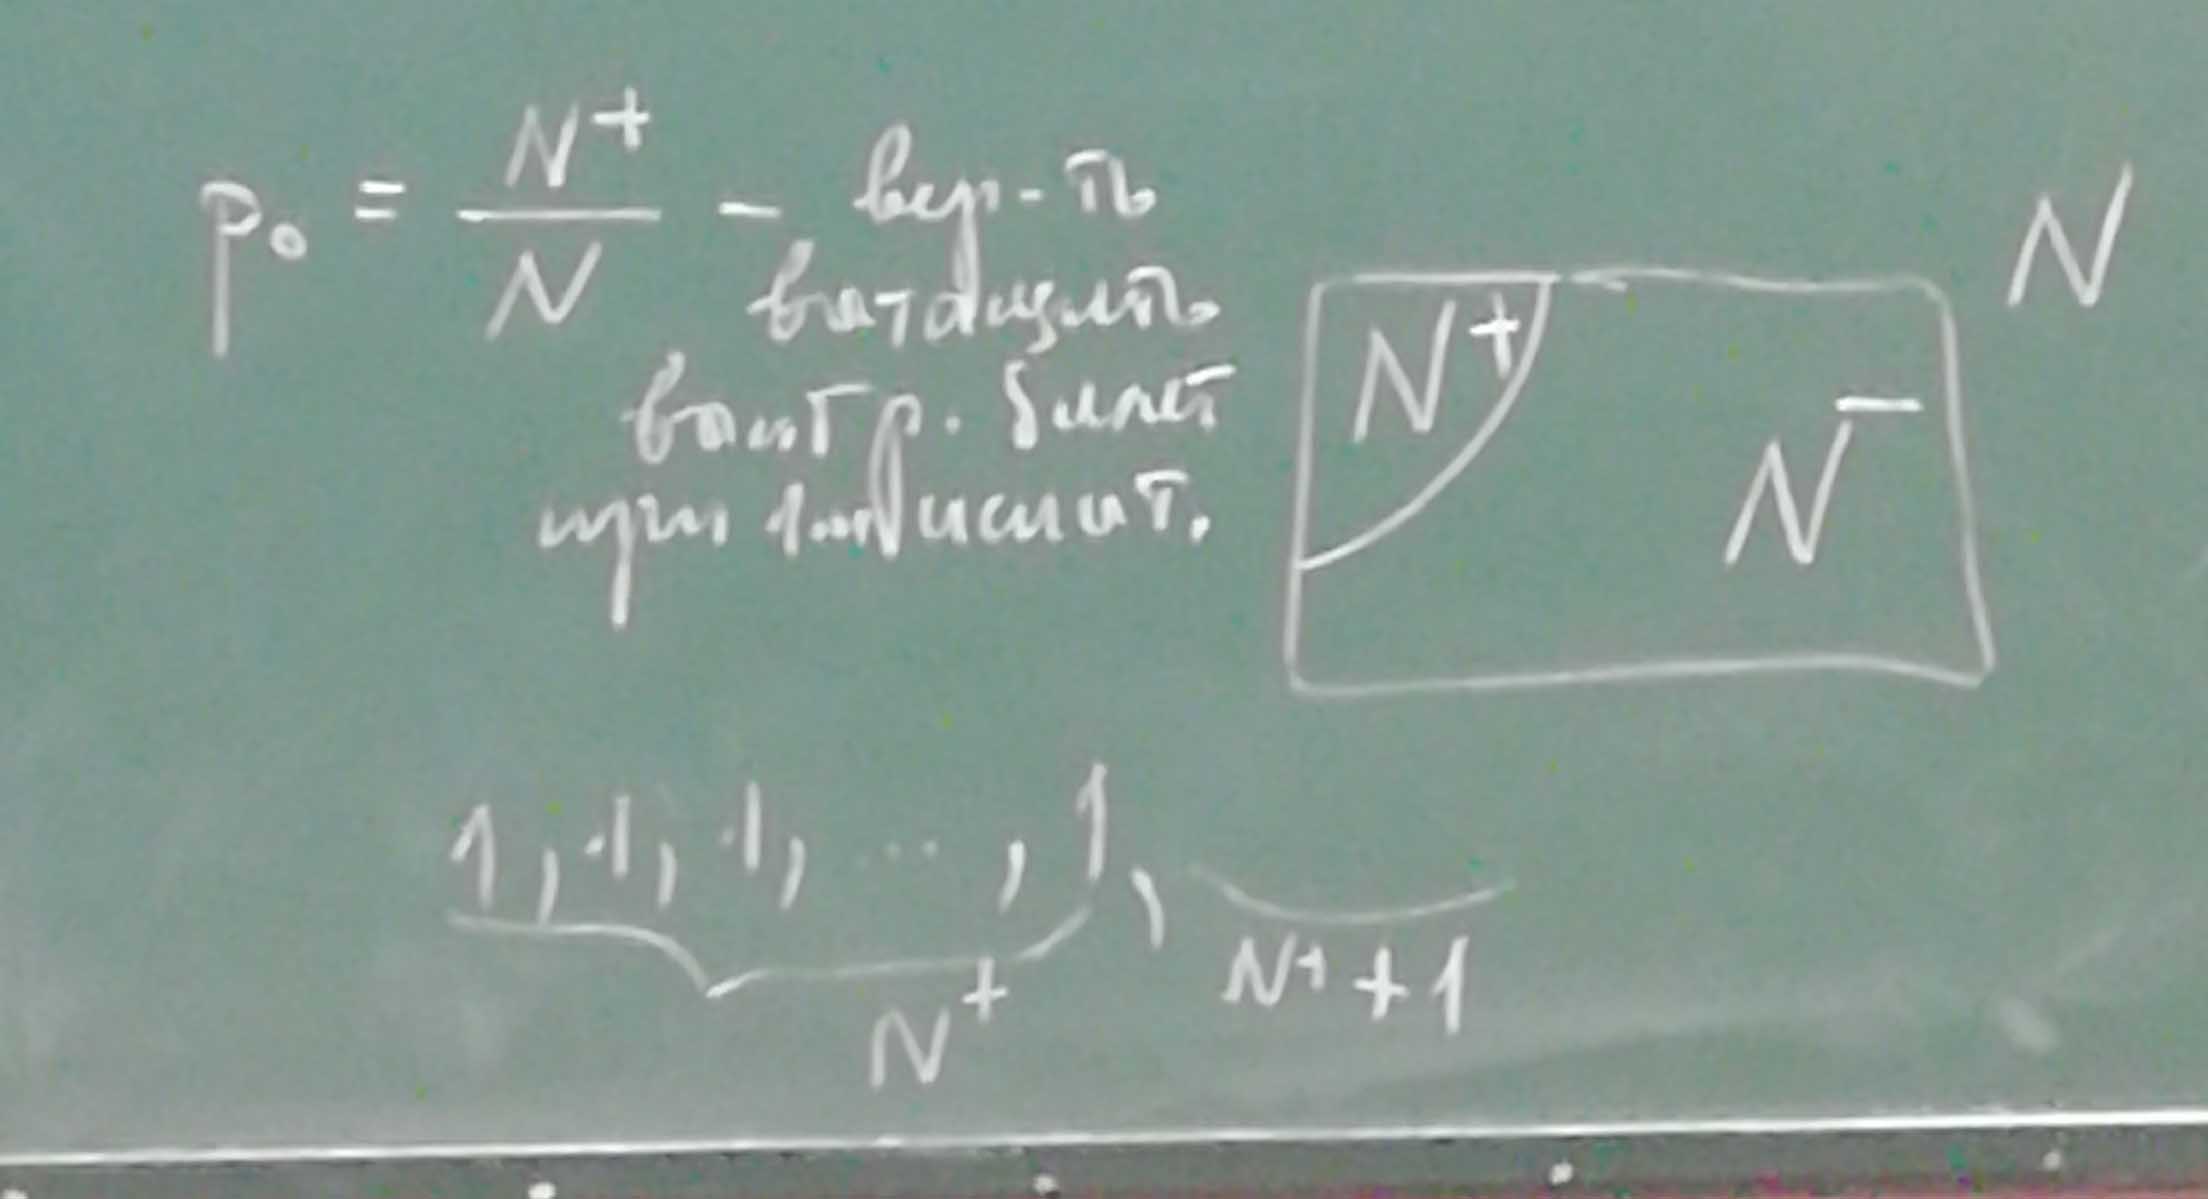 p₀ = N⁺/N - вер-ть
вытащить
выигр. билет
при 1-м испыт.
N
N⁺
N⁻
1, 1, 1, ..., 1,
N⁺
N⁺ + 1